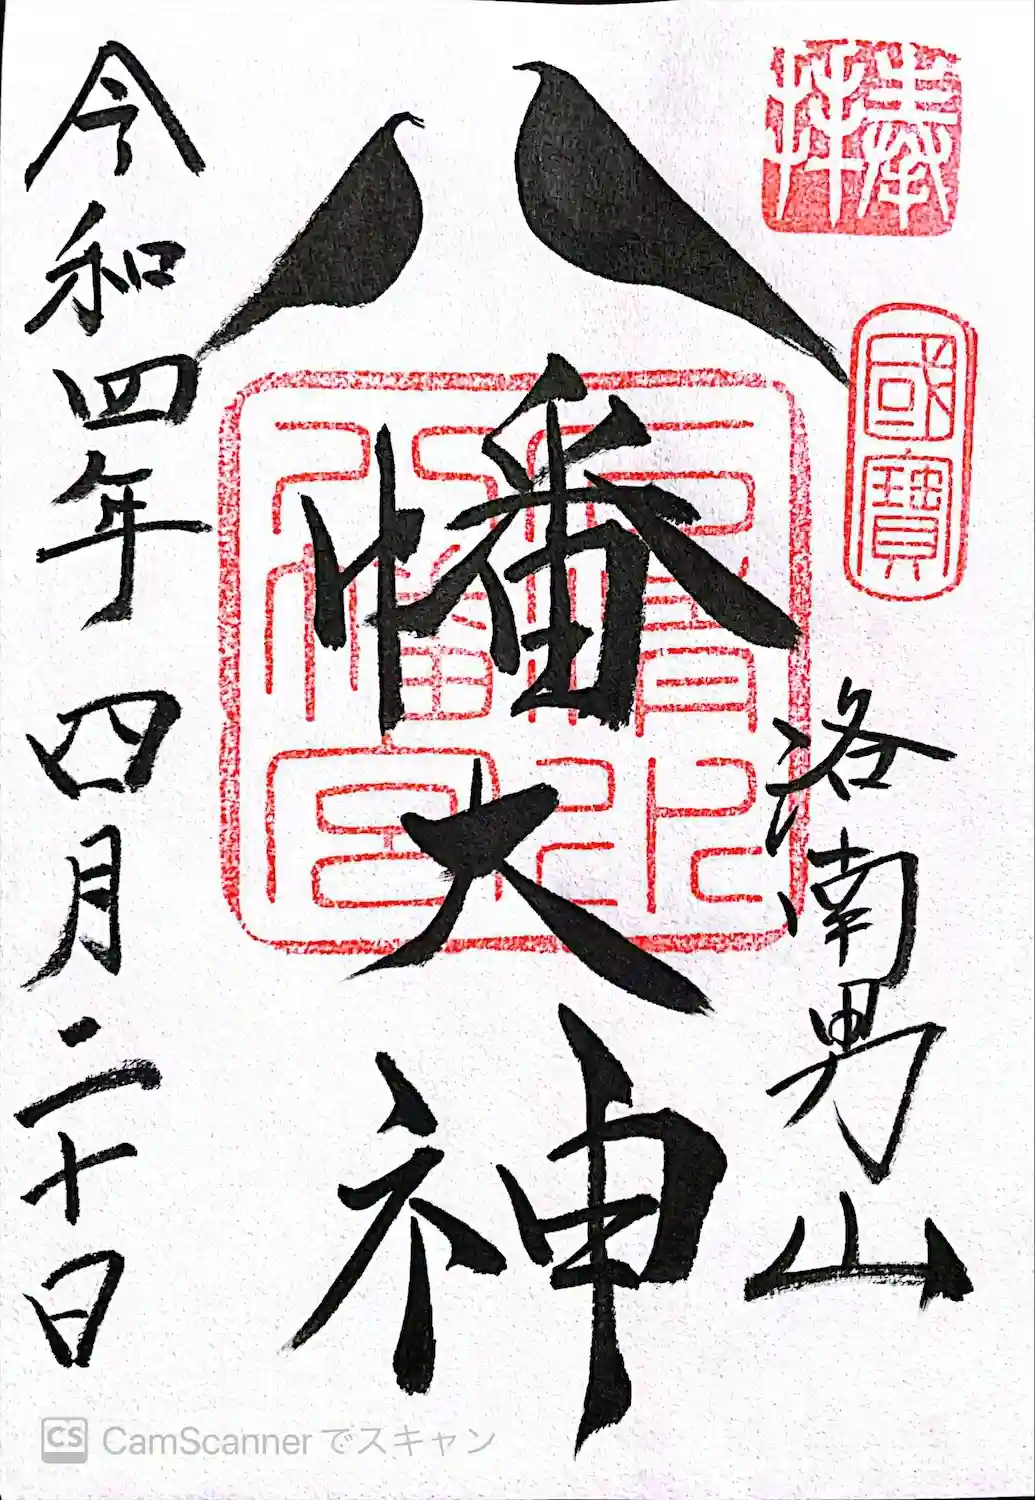 奉拝
國寶
洛南男山
八幡大神
石清水八幡宮
令和四年四月二十日
CS CamScanner でスキャン